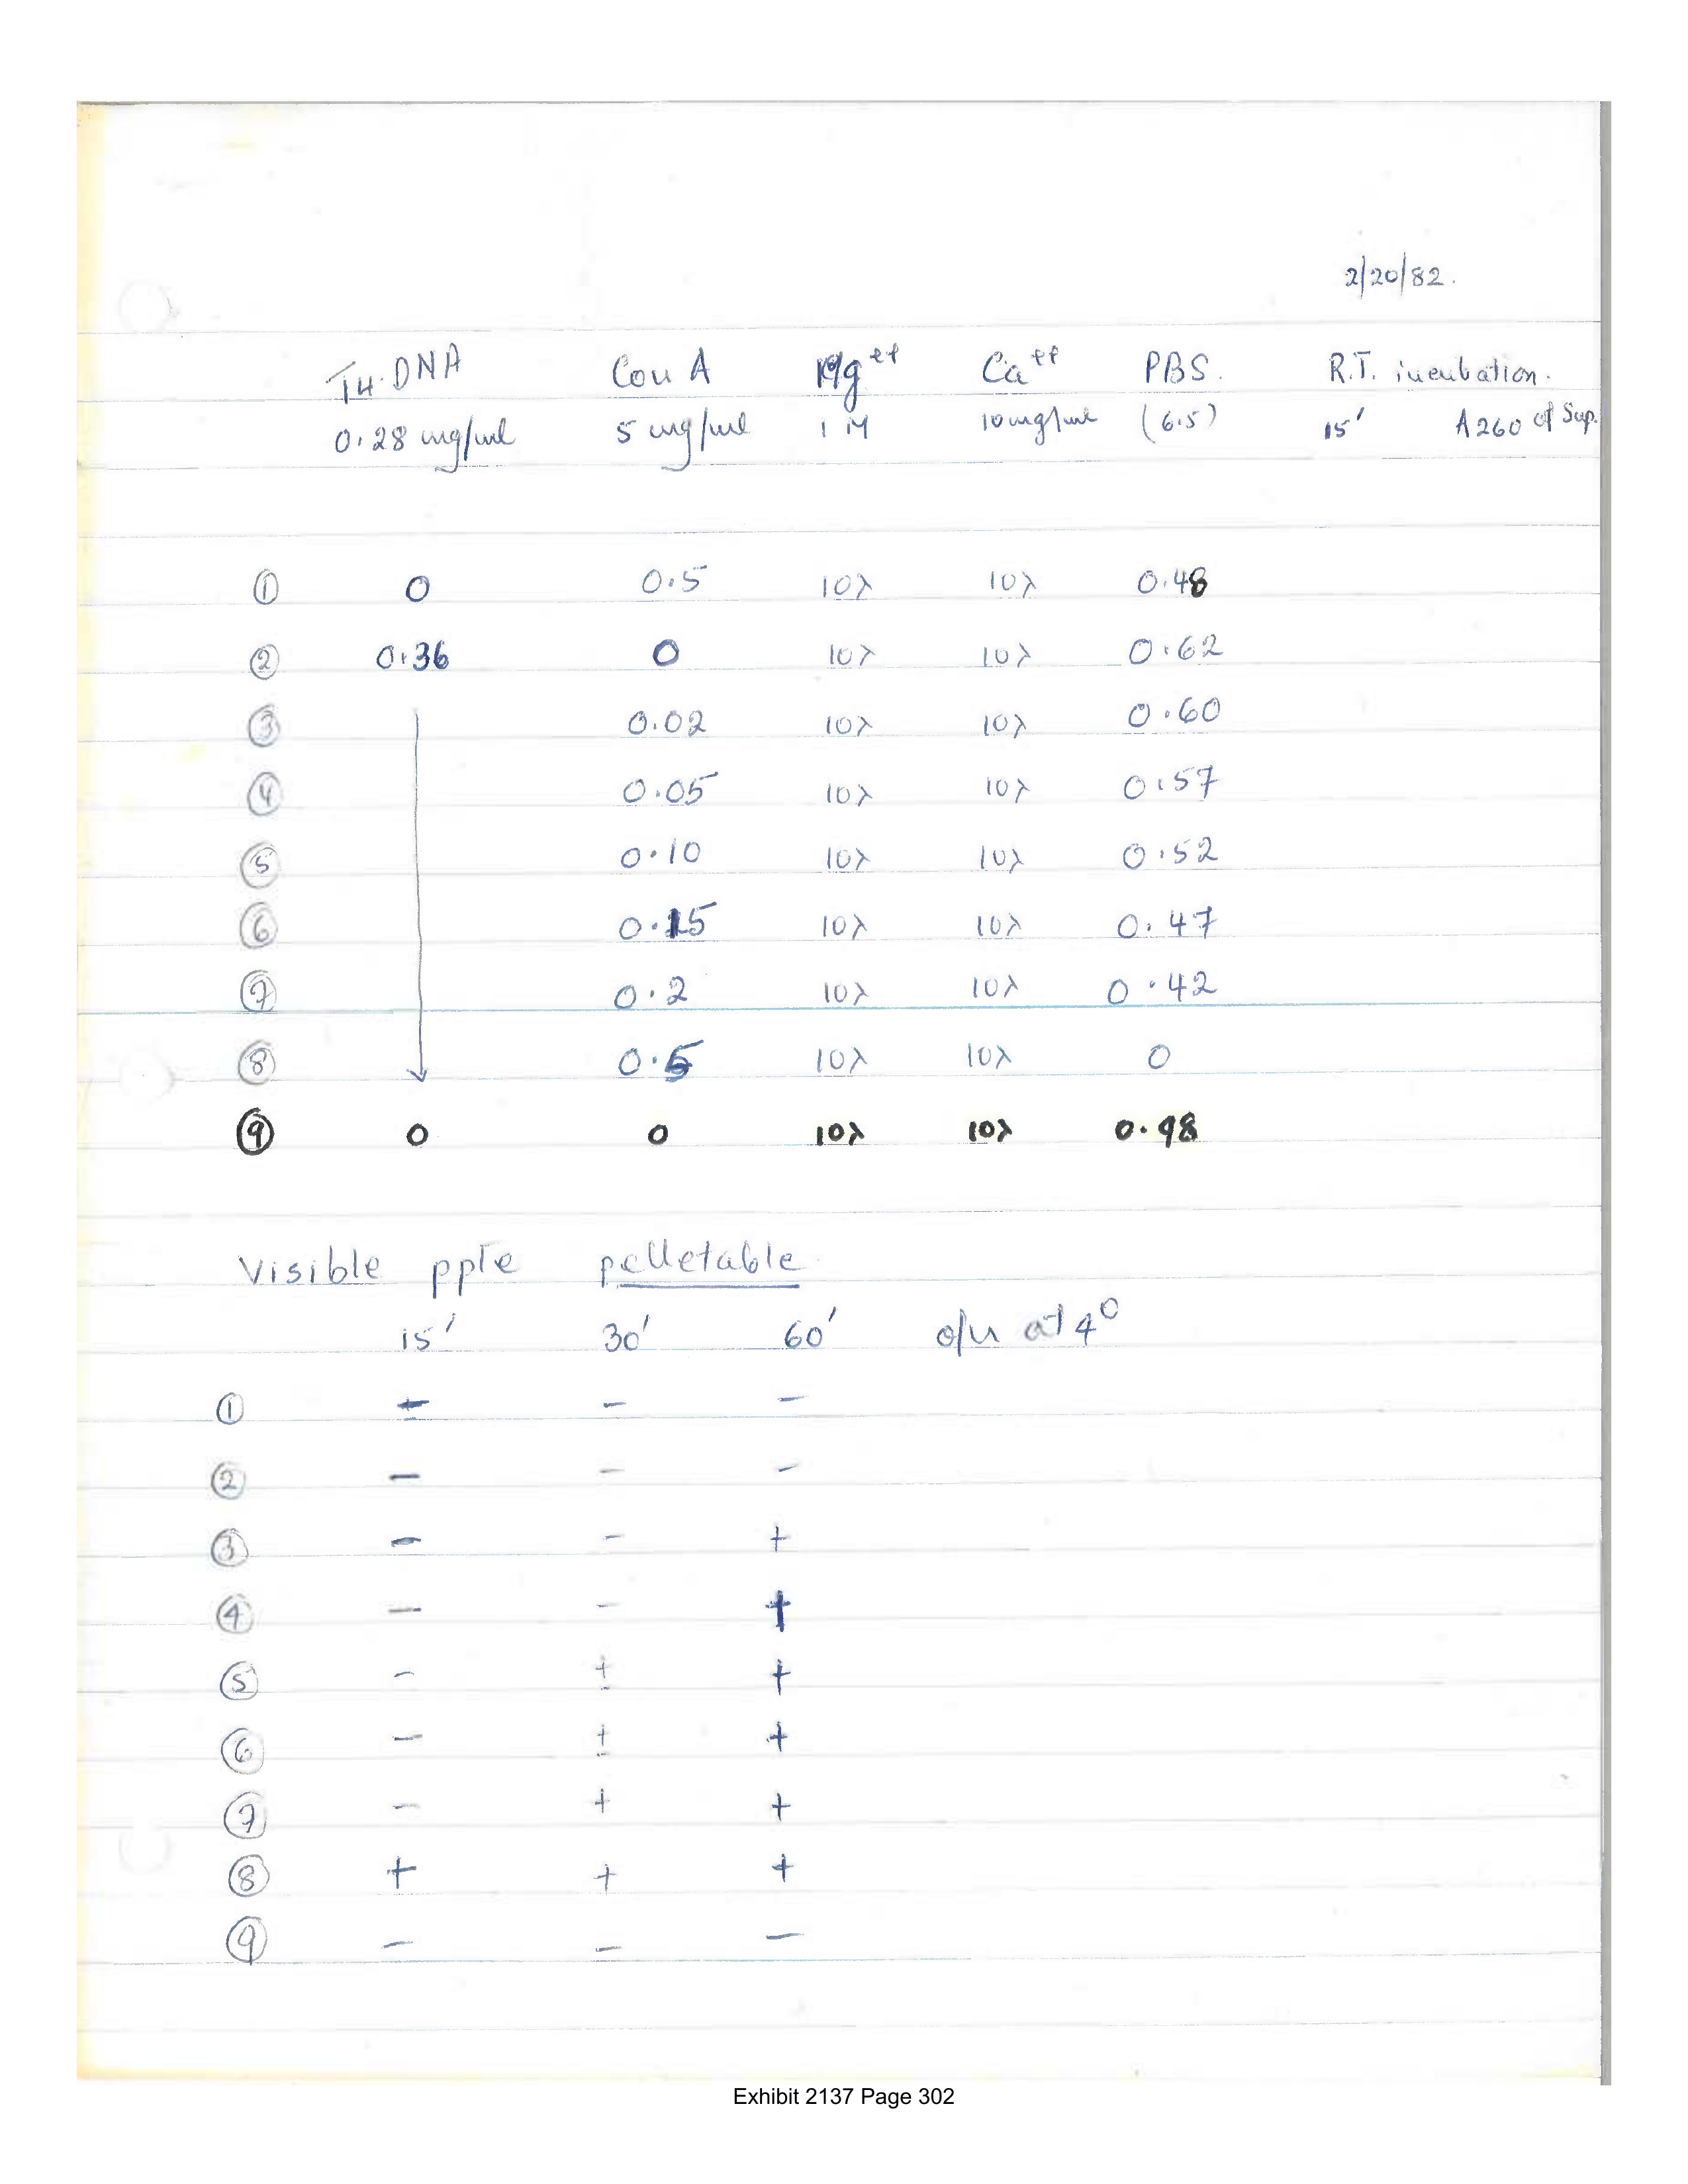 2/20/82.
T4·DNA Con A Mg++ Ca++ PBS. R.T. incubation.
0.28 mg/ml 5 mg/ml 1 M 10mg/ml (6.5) 15' A260 of Sup.
① 0 0.5 10λ 10λ 0.48
② 0.36 0 10λ 10λ 0.62
③ 0.02 10λ 10λ 0.60
④ 0.05 10λ 10λ 0.57
⑤ 0.10 10λ 10λ 0.52
⑥ 0.15 10λ 10λ 0.47
⑦ 0.2 10λ 10λ 0.42
⑧ 0.5 10λ 10λ 0
⑨ 0 0 10λ 10λ 0.98
Visible ppte pelletable
15' 30' 60' o/n at 4°
① - -
② - - -
③ - - +
④ - - +
⑤ - ± +
⑥ - ± +
⑦ - + +
⑧ + + +
⑨ - - -
Exhibit 2137 Page 302